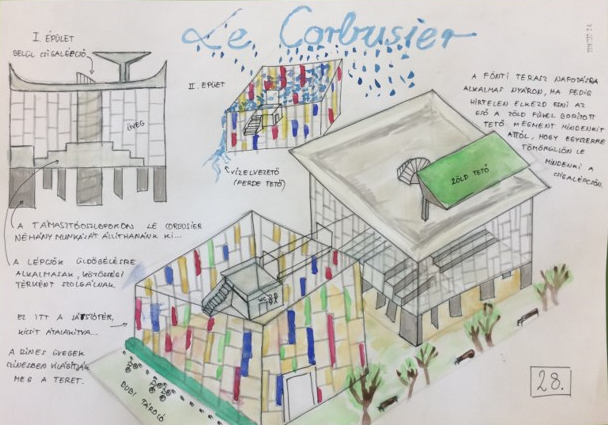 Le Corbusier
I. ÉPÜLET
BELÜL CSIGALÉPCSŐ
ÜVEG
II. ÉPÜET
VÍZELVEZETŐ
(FERDE TETŐ)
A FÖNTI TERASZ NAPOZÁSRA
ALKALMAS NYÁRON, HA PEDIG
HIRTELEN ELKEZD ESNI AZ
ESŐ A ZÖLD FŰVEL BORÍTOTT
TETŐ MEGMENT MINDENKIT
ATTÓL, HOGY EGYSZERRE
TÖMÖRÖLJÖN LE
MINDENKI A
CSIGALÉPCSŐN
ZÖLD TETŐ
A TÁMASZTÓOSZLOPOKON LE CORBUSIER
NÉHÁNY MUNKÁJÁT ÁLLÍTHATNÁNK KI...
A LÉPCSŐK ÜLDÖGÉLÉSRE
ALKALMASAK, KÖZÖSSÉGI
TÉRKÉNT SZOLGÁLNAK.
EZ ITT A JÁTSZÓTÉR,
KICSIT ÁTALAKÍTVA...
A SZÍNES ÜVEGEK
SZÍNESBEN VILÁGÍTJÁK
MEG A TERET.
WC
BUDI TÁROLÓ
28.